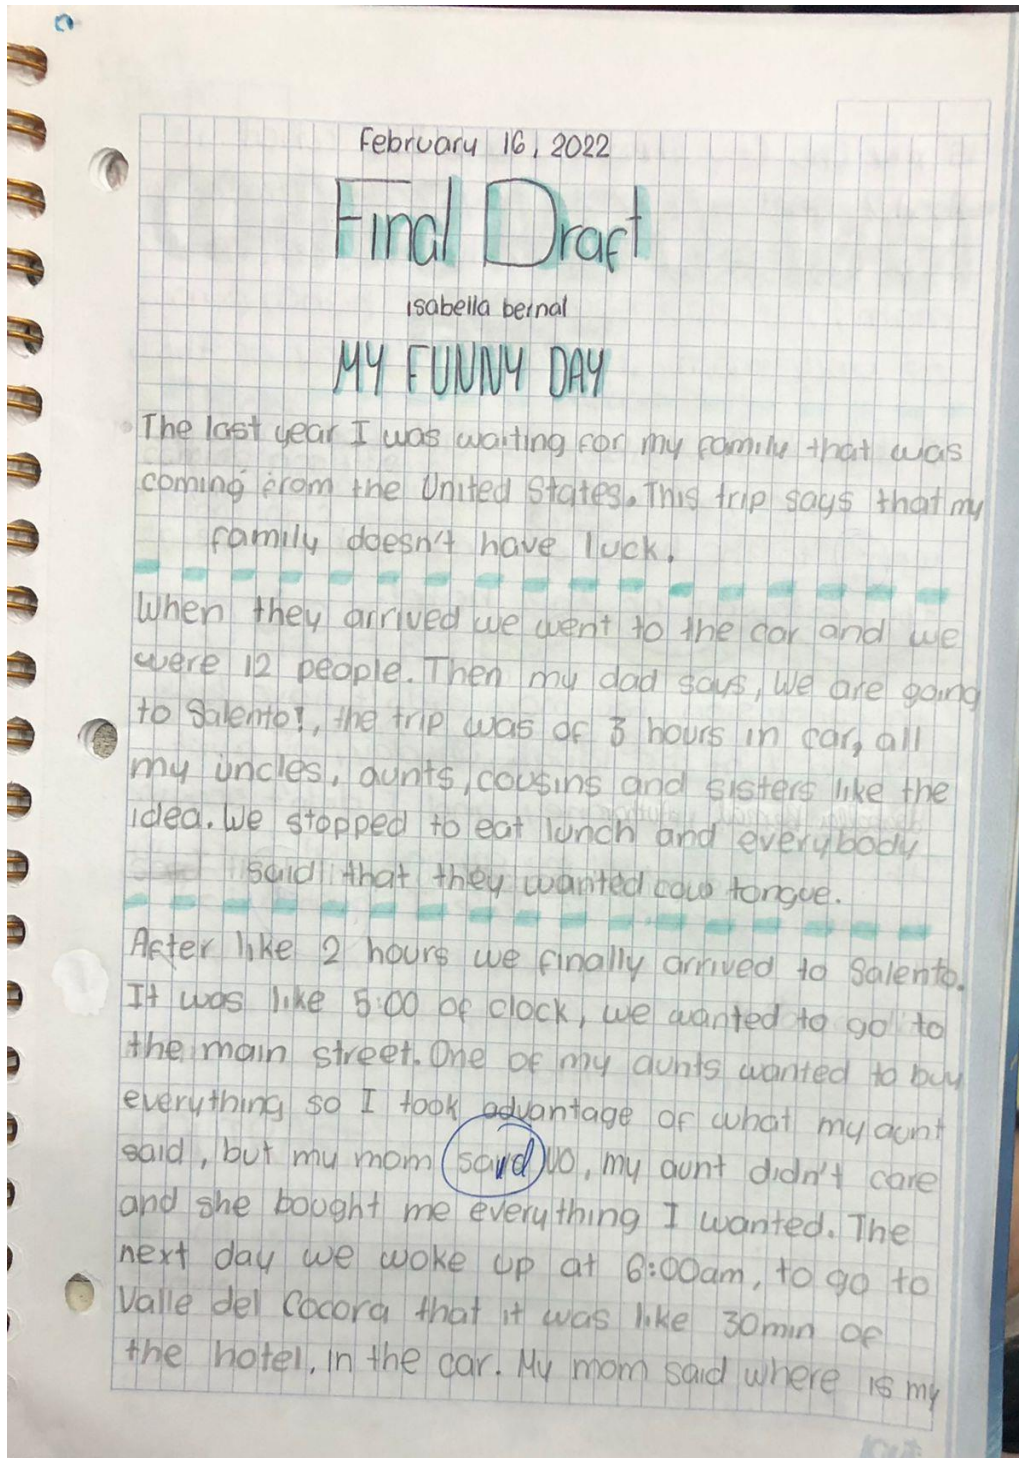 February 16, 2022
Final Draft
isabella bernal
MY FUNNY DAY
The last year I was waiting for my family that was
coming from the United States. This trip says that my
family doesn't have luck.
When they arrived we went to the car and we
were 12 people. Then my dad says, We are going
to Salento!, the trip was of 3 hours in car, all
my uncles, aunts, cousins and sisters like the
idea. We stopped to eat lunch and everybody
said that they wanted cow tongue.
After like 2 hours we finally arrived to Salento.
It was like 5:00 of clock, we wanted to go to
the main street. One of my aunts wanted to buy
everything so I took advantage of what my aunt
said, but my mom said NO, my aunt didn't care
and she bought me everything I wanted. The
next day we woke up at 6:00am, to go to
Valle del Cocora that it was like 30min of
the hotel, in the car. My mom said where is my